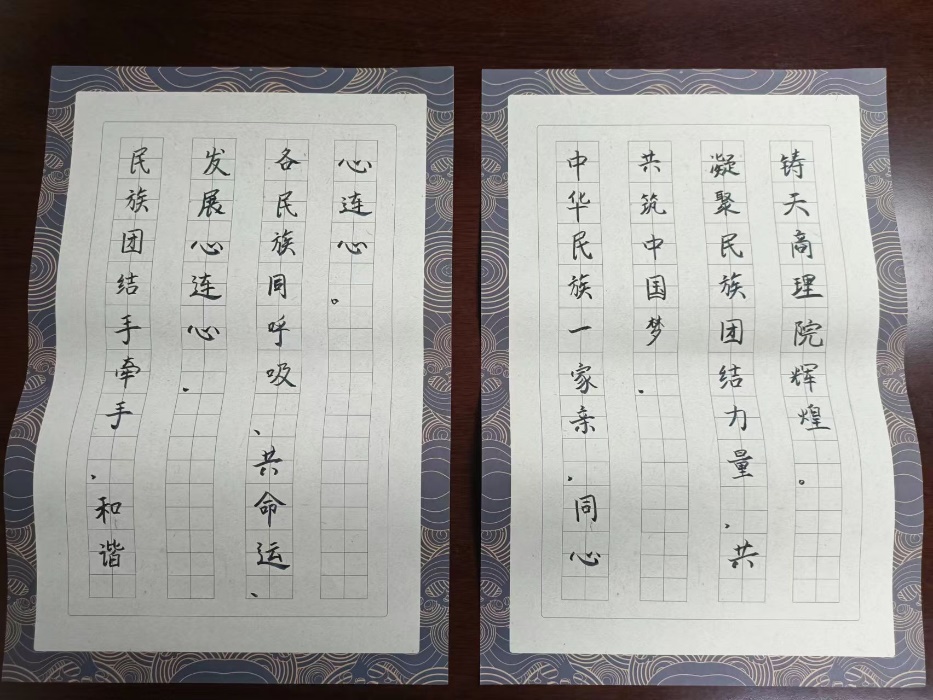 民族团结手牵手，和谐
发展心连心，
各民族同呼吸、共命运、
心连心。
中华民族一家亲，同心
共筑中国梦，
凝聚民族团结力量，共
铸天商理院辉煌。